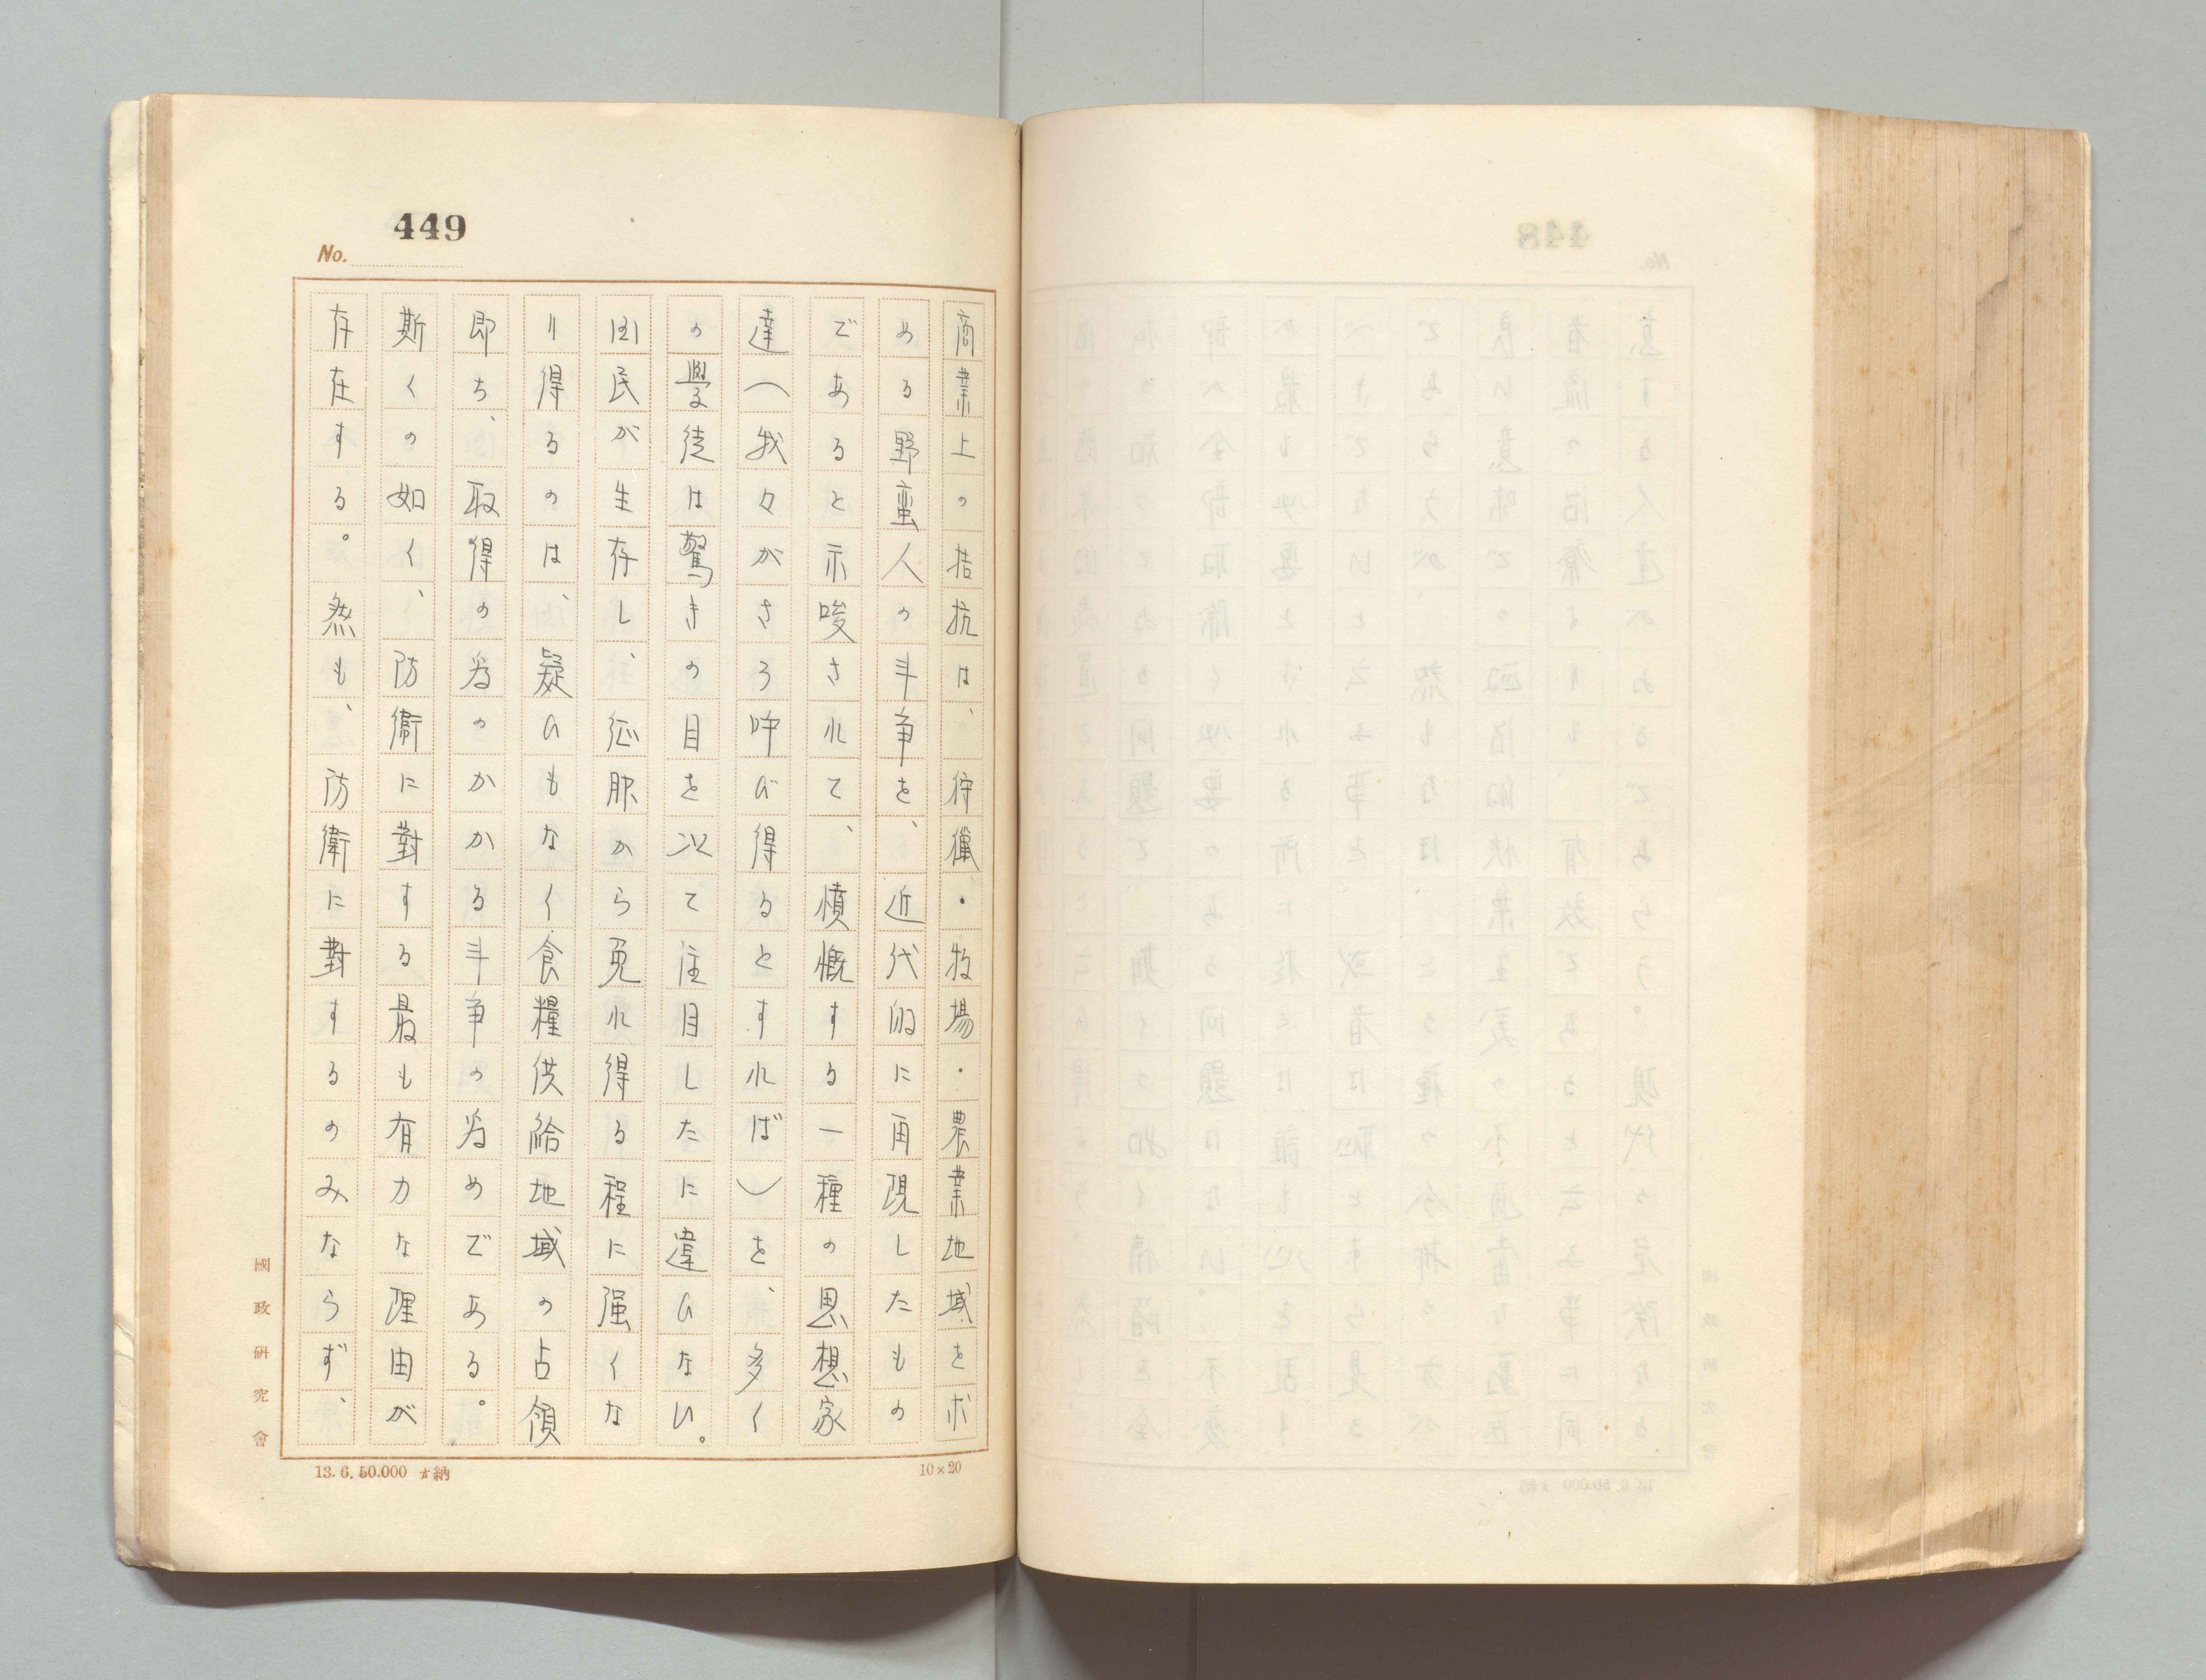 449
No.
商業上の拮抗は、狩獵・牧場・農業地域を求
める野蛮人の斗争を、近代的に再現したもの
であると示唆されて、憤慨する一種の思想家
達(我々がさう呼び得るとすれば)を、多く
の學徒は驚きの目を以て注目したに違ひない。
国民が生存し、征服から免れ得る程に强くな
り得るのは、疑ひもなく食糧供給地域の占領
即ち、取得の為のかかる斗争の為めである。
斯くの如く、防衛に對する最も有力な理由が
存在する。然も、防衛に對するのみならず、
國政研究會
13.6.50.000 納
10×20